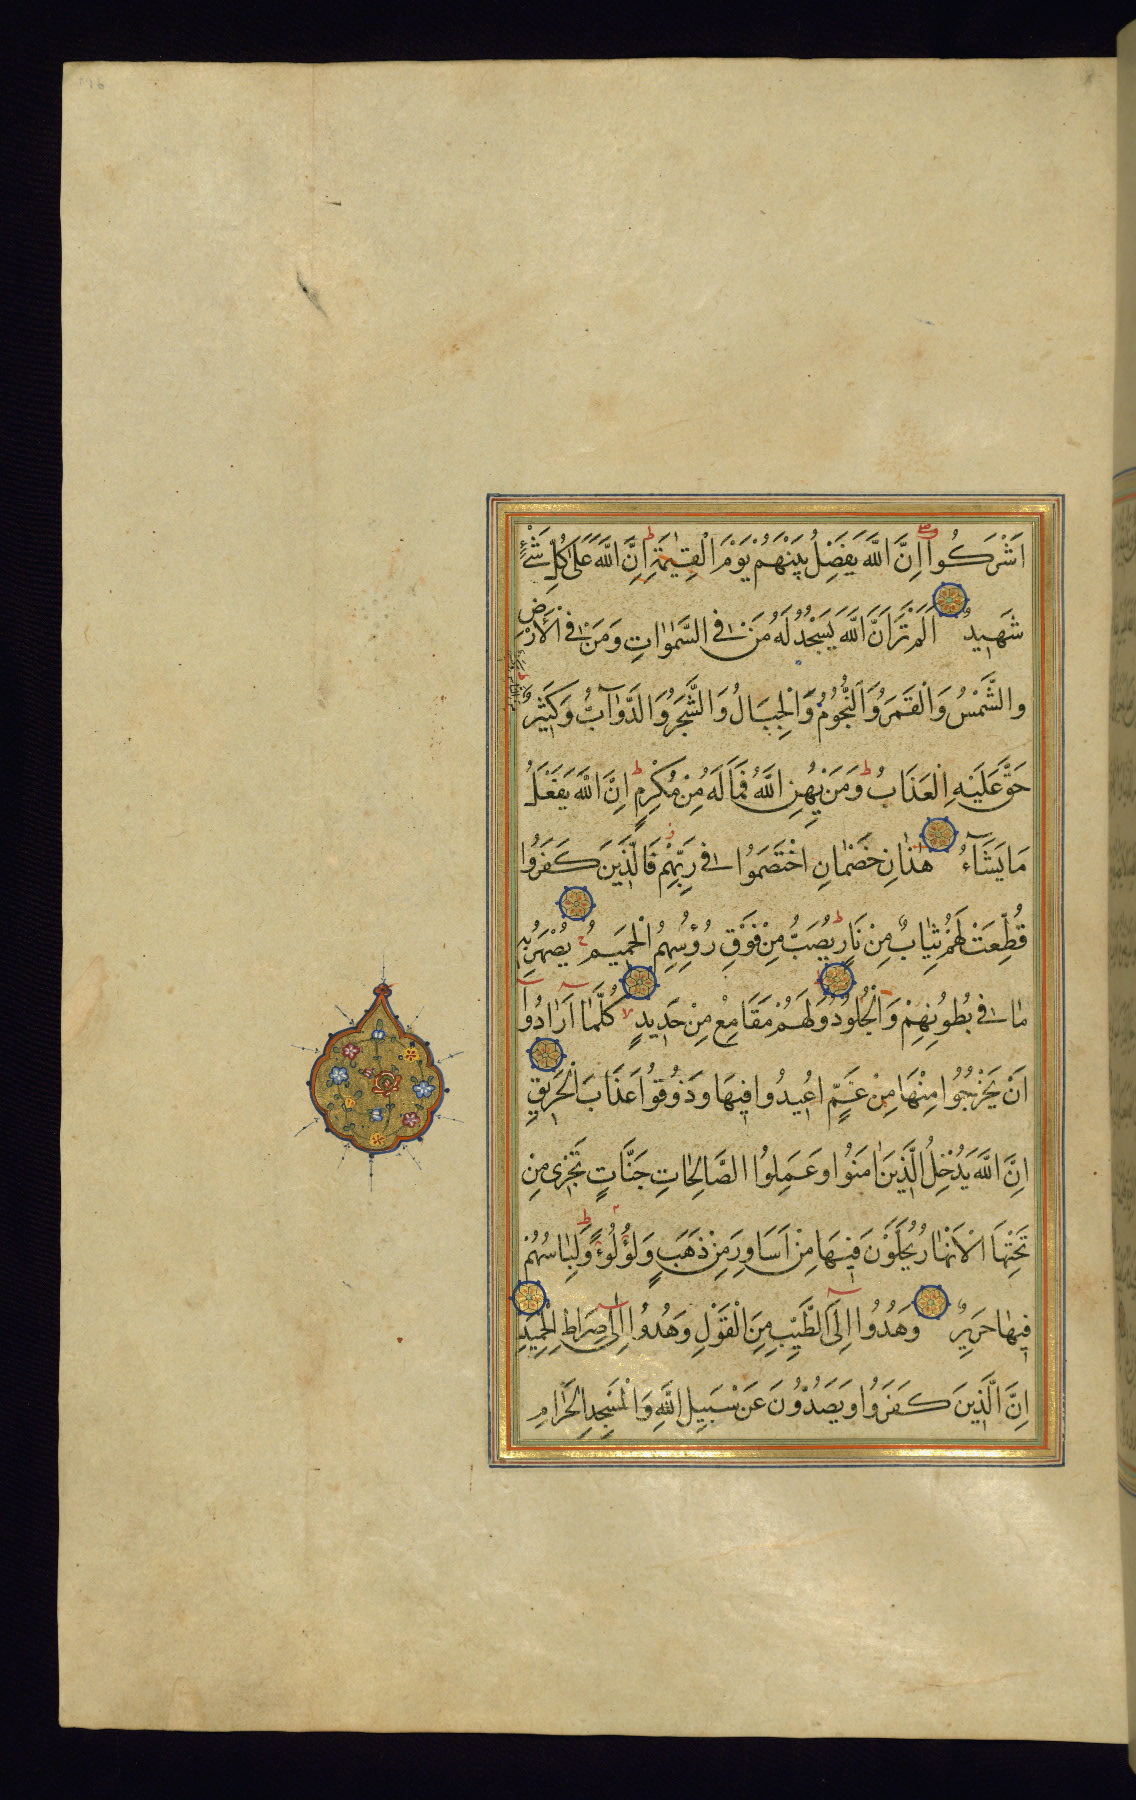 اَشْرَكُوا اِنَّ اللّٰهَ يَفْصِلُ بَيْنَهُمْ يَوْمَ الْقِيٰمَةِ ط اِنَّ اللّٰهَ عَلٰى كُلِّ شَيْءٍ
شَهِيدٌ اَلَمْ تَرَ اَنَّ اللّٰهَ يَسْجُدُ لَهُ مَنْ فِي السَّمٰوَاتِ وَمَنْ فِي الْاَرْضِ
وَالشَّمْسُ وَالْقَمَرُ وَالنُّجُومُ وَالْجِبَالُ وَالشَّجَرُ وَالدَّوَآبُّ وَكَثِيرٌ
حَقَّ عَلَيْهِ الْعَذَابُ ط وَمَنْ يُهِنِ اللّٰهُ فَمَا لَهُ مِنْ مُكْرِمٍ ط اِنَّ اللّٰهَ يَفْعَلُ
مَا يَشَآءُ هٰذَانِ خَصْمَانِ اخْتَصَمُوا فِي رَبِّهِمْ فَالَّذِينَ كَفَرُوا
قُطِّعَتْ لَهُمْ ثِيَابٌ مِنْ نَارٍ ط يُصَبُّ مِنْ فَوْقِ رُؤُسِهِمُ الْحَمِيمُ ج يُصْهَرُ بِهِ
مَا فِي بُطُونِهِمْ وَالْجُلُودُ وَلَهُمْ مَقَامِعُ مِنْ حَدِيدٍ لا كُلَّمَا اَرَادُوا
اَنْ يَخْرُجُوا مِنْهَا مِنْ غَمٍّ اُعِيدُوا فِيهَا وَذُوقُوا عَذَابَ الْحَرِيقِ
اِنَّ اللّٰهَ يُدْخِلُ الَّذِينَ اٰمَنُوا وَعَمِلُوا الصَّالِحَاتِ جَنَّاتٍ تَجْرِي مِنْ
تَحْتِهَا الْاَنْهَارُ يُحَلَّوْنَ فِيهَا مِنْ اَسَاوِرَ مِنْ ذَهَبٍ وَلُؤْلُؤًا ط وَلِبَاسُهُمْ
فِيهَا حَرِيرٌ وَهُدُوا اِلَى الطَّيِّبِ مِنَ الْقَوْلِ وَهُدُوا اِلٰى صِرَاطِ الْحَمِيدِ
اِنَّ الَّذِينَ كَفَرُوا وَيَصُدُّونَ عَنْ سَبِيلِ اللّٰهِ وَالْمَسْجِدِ الْحَرَامِ